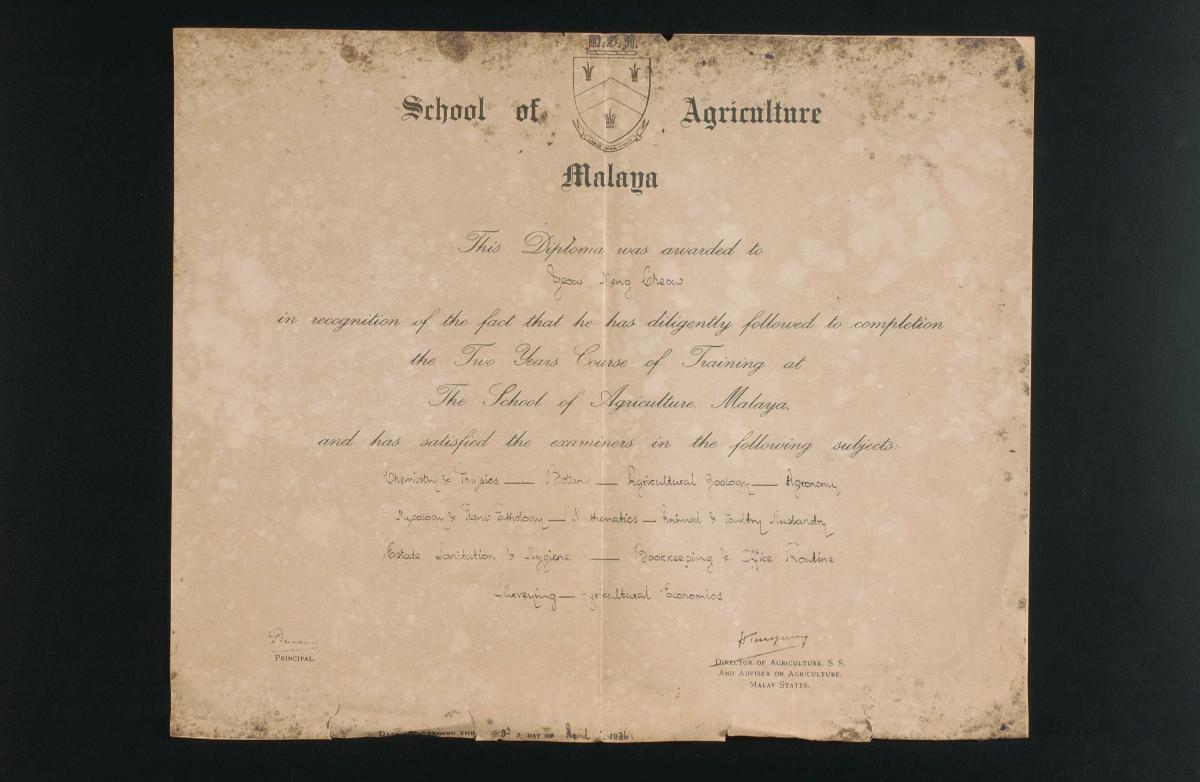 M.S.A.
School of Agriculture
Malaya
This Diploma was awarded to
Yeow Meng Cheow
in recognition of the fact that he has diligently followed to completion
the Two Years Course of Training at
The School of Agriculture, Malaya,
and has satisfied the examiners in the following subjects:
Chemistry & Physics — Botany — Agricultural Zoology — Agronomy
Mycology & Plant Pathology — Mathematics — Animal & Poultry Husbandry
Estate Sanitation & Hygiene — Bookkeeping & Office Routine
Surveying — Agricultural Economics
PRINCIPAL.
DIRECTOR OF AGRICULTURE, S. S.
AND ADVISER ON AGRICULTURE,
MALAY STATES.
DAY OF April 1936.